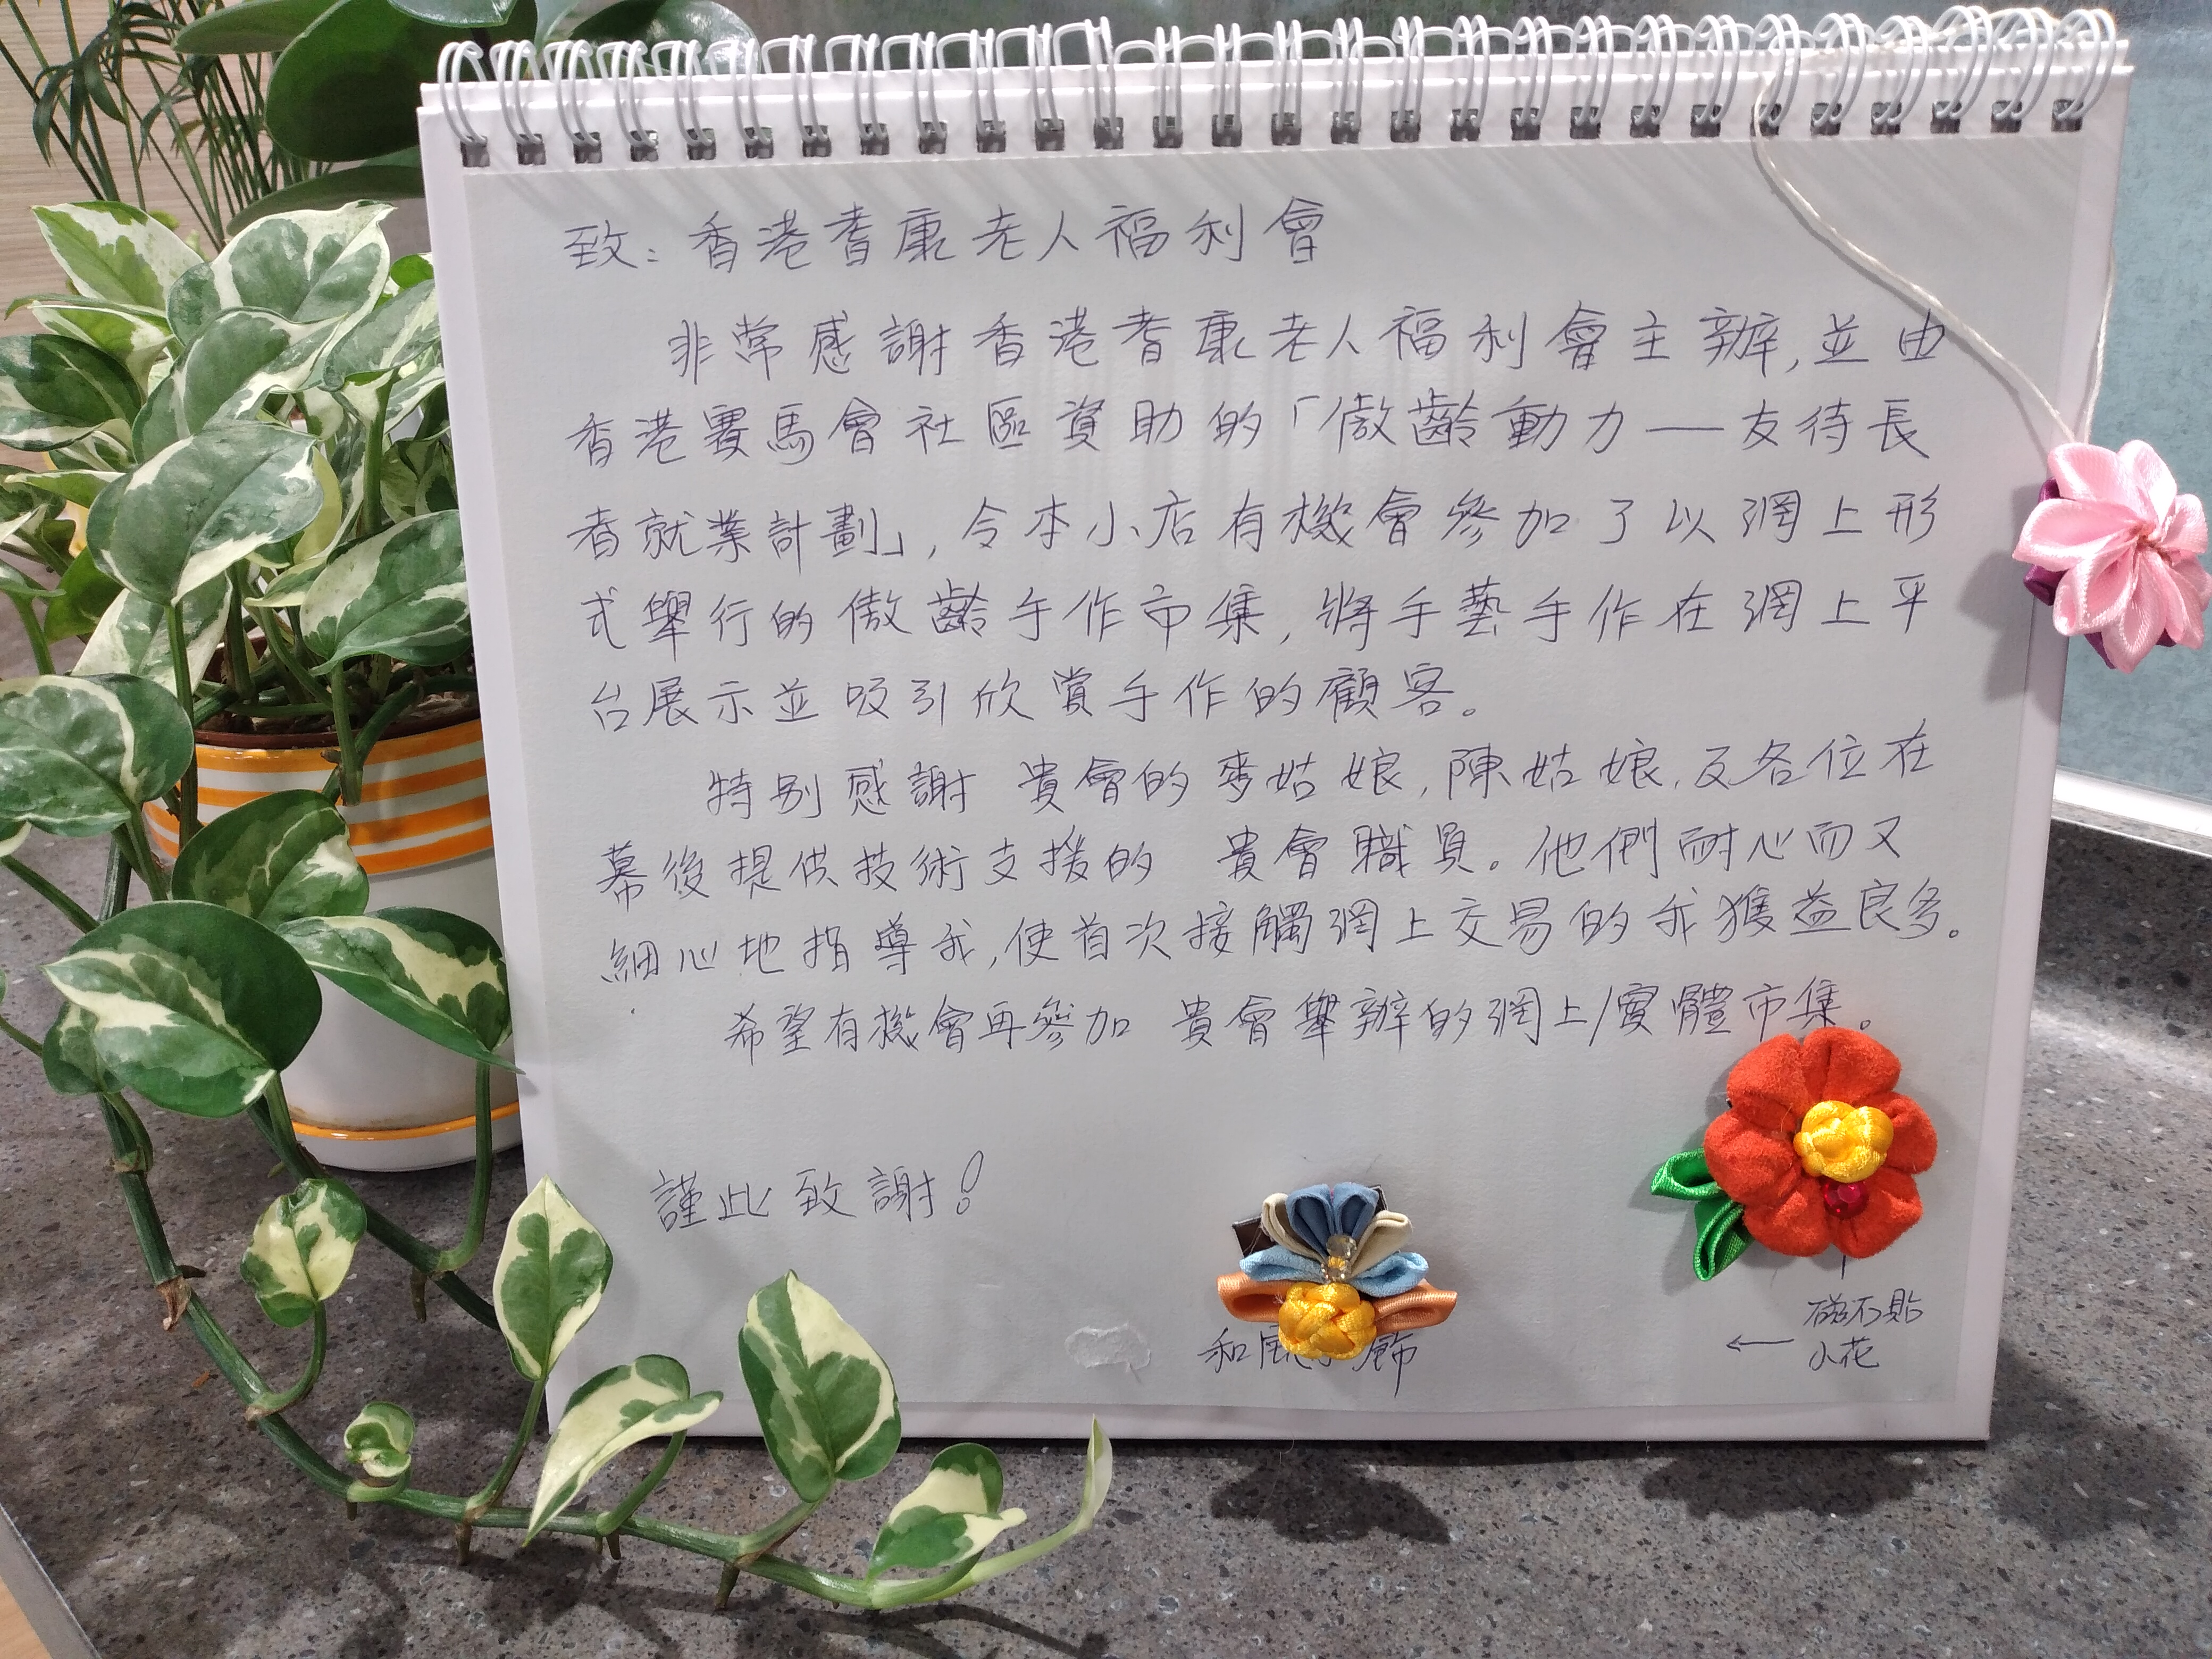 致：香港耆康老人福利會
非常感謝香港耆康老人福利會主辦,並由
香港賽馬會社區資助的「傲齡動力——友待長
者就業計劃」,令本小店有機會參加了以網上形
式舉行的傲齡手作市集,將手藝手作在網上平
台展示並吸引欣賞手作的顧客。
特別感謝 貴會的麥姑娘,陳姑娘,及各位在
幕後提供技術支援的 貴會職員。他們耐心而又
細心地指導我,使首次接觸網上交易的我獲益良多。
希望有機會再參加 貴會舉辦的網上/實體市集。
謹此致謝!
磁石貼
和風 飾
← 小花